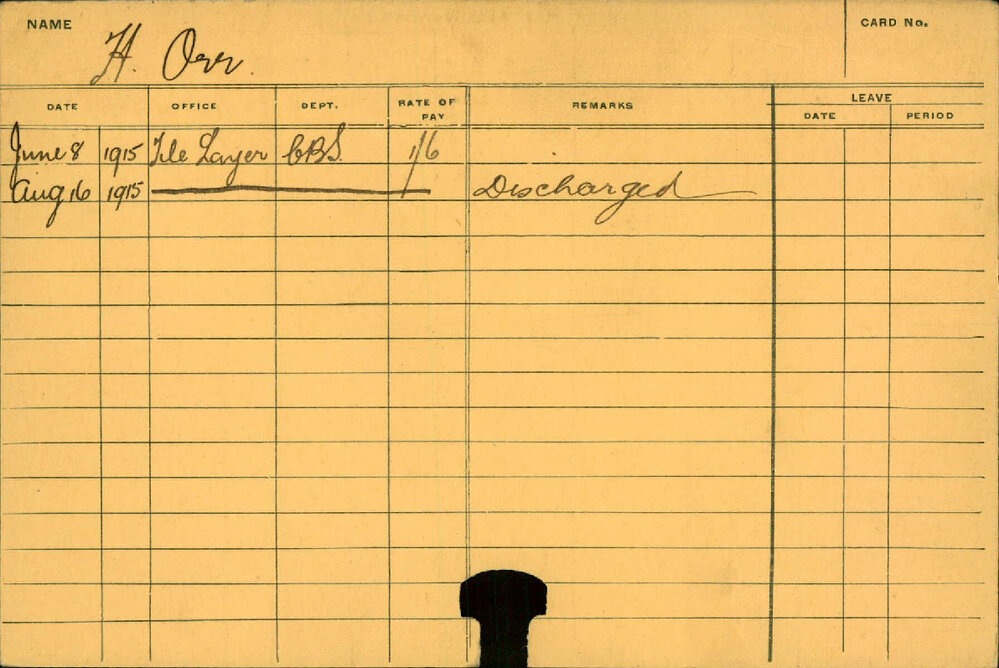 NAME
H. Orr.
CARD No.
DATE OFFICE DEPT. RATE OF PAY REMARKS LEAVE
DATE PERIOD
June 8 1915 Tile Layer CBS. 1/6
Aug 16 1915 Discharged